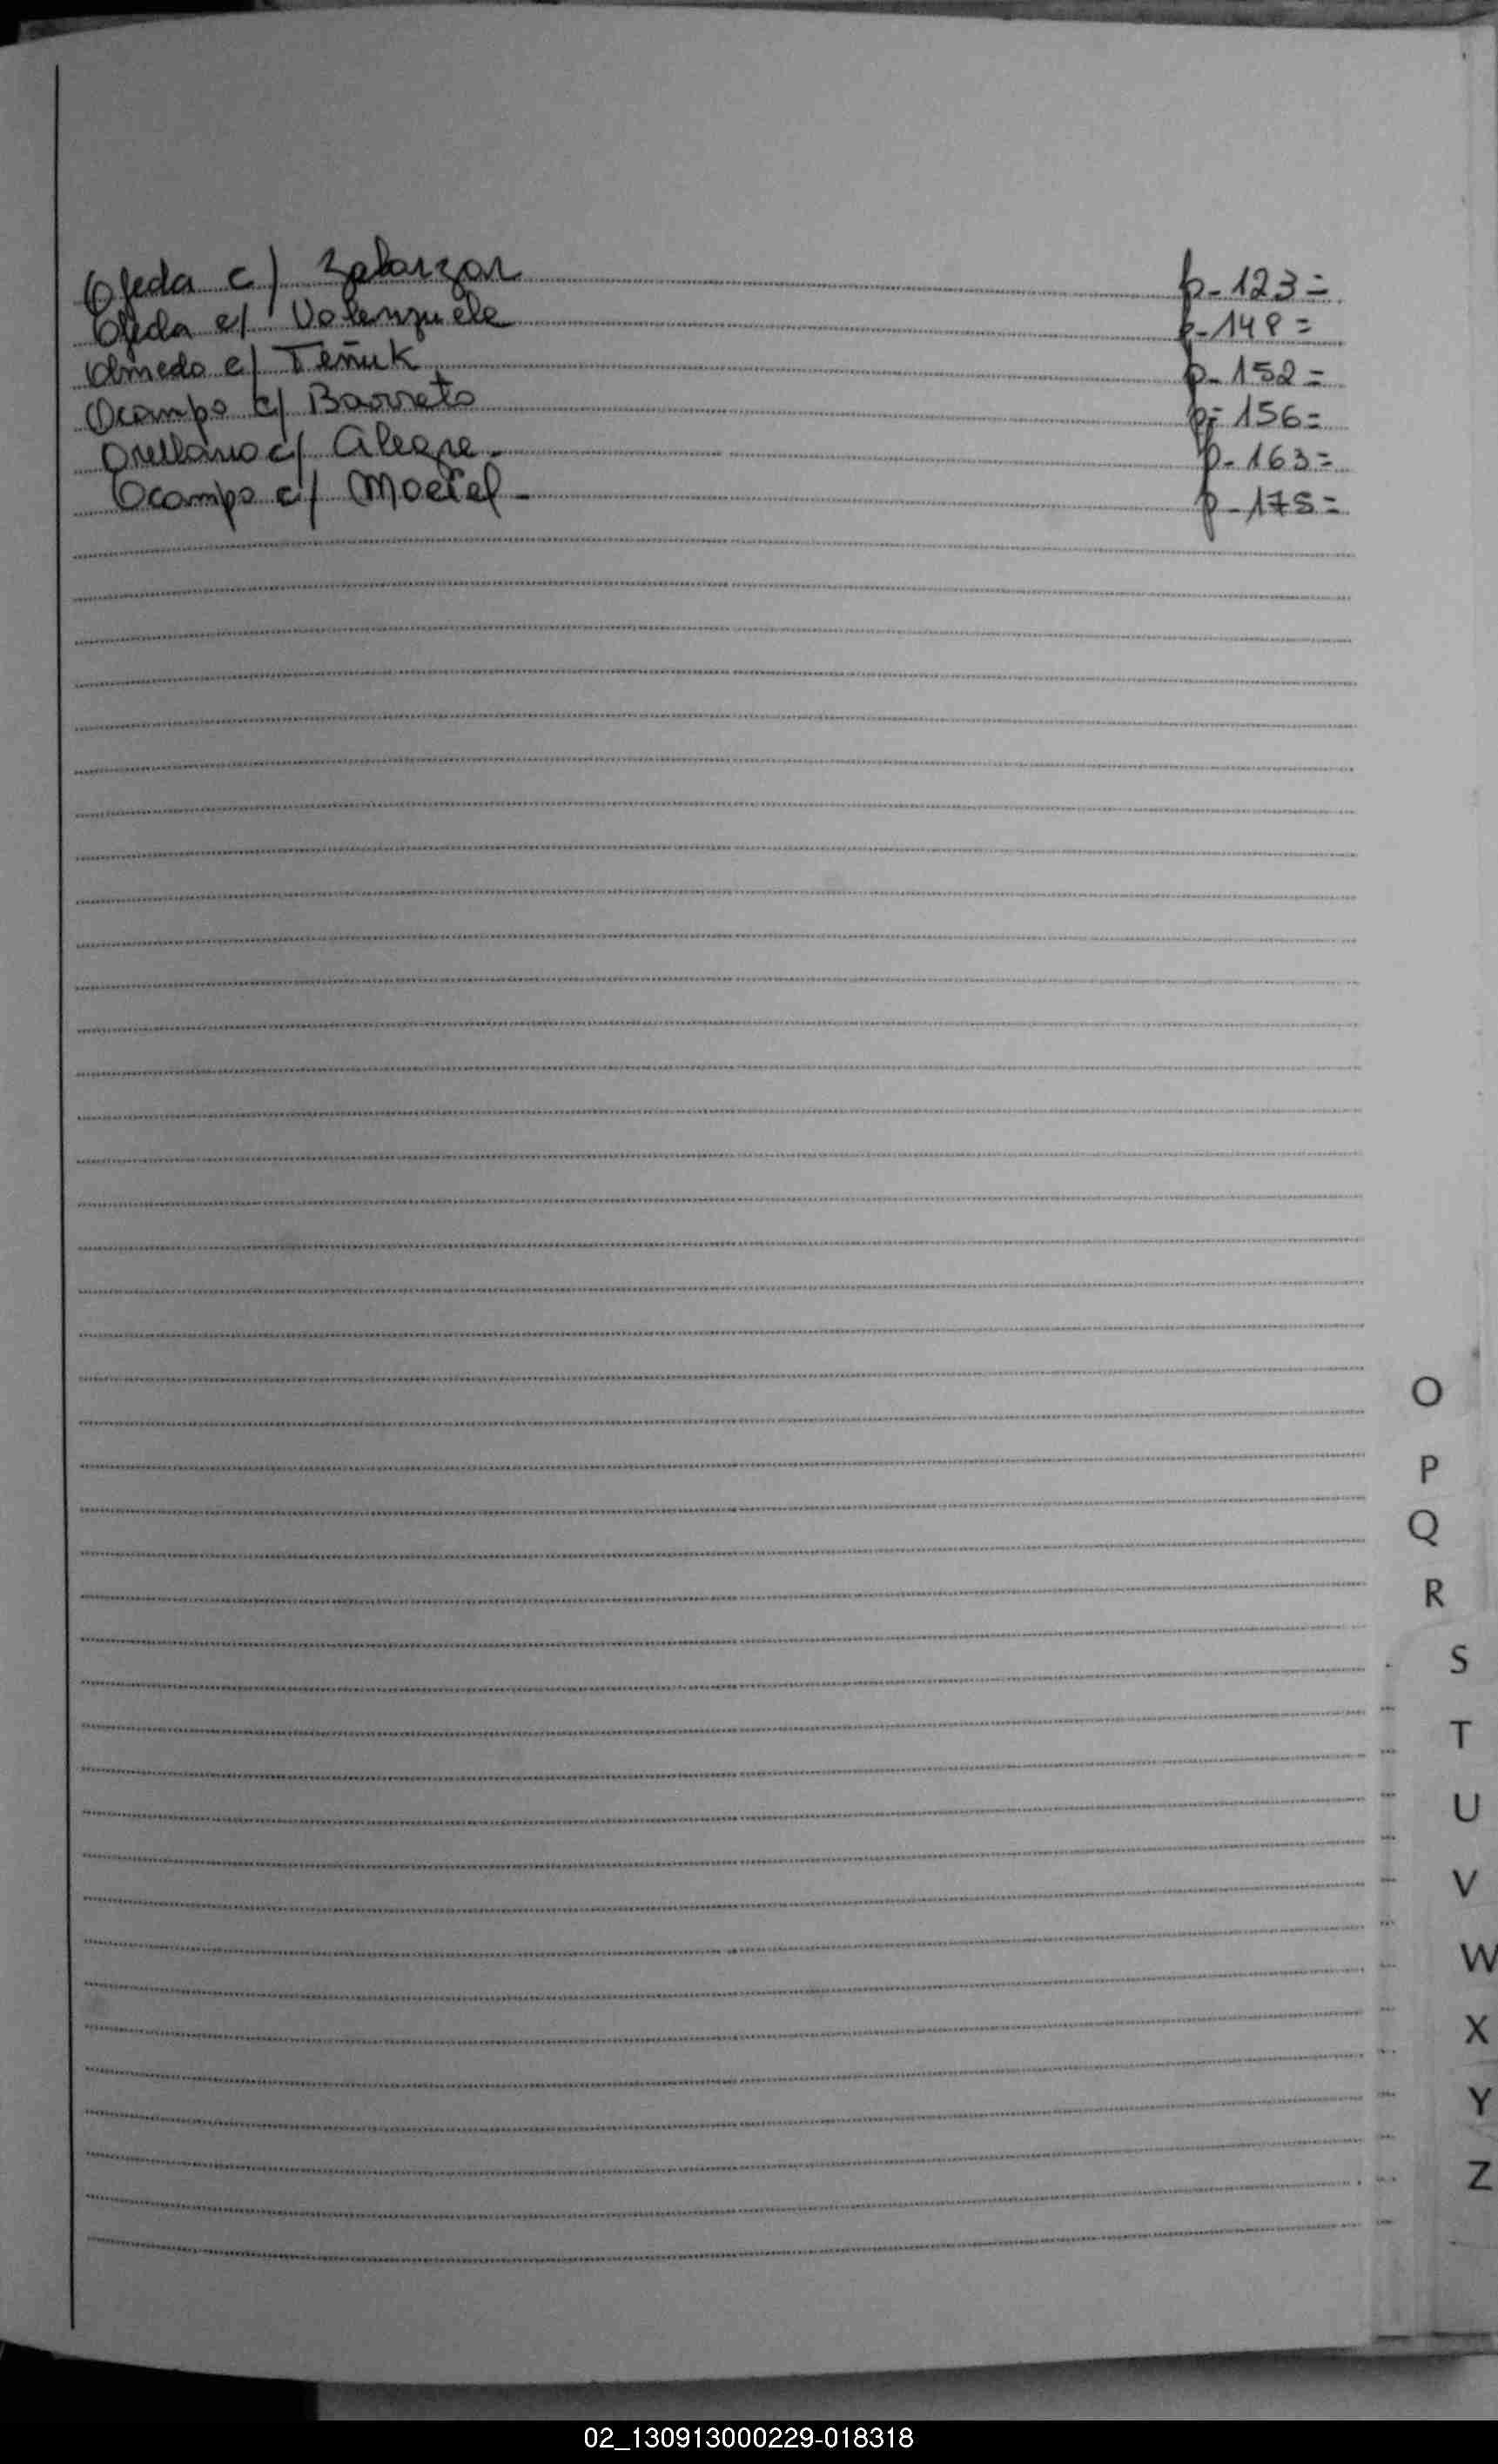 Ojeda c/ Zalarzar p- 123=
Ojeda c/ Valenzuela p- 148=
Olmedo c/ Teñuk p- 152=
Ocampo c/ Barreto p- 156=
Orellano c/ Alegre. p- 163=
Ocampo c/ Maciel - p- 175=
O
P
Q
R
S
T
U
V
W
X
Y
Z
02_130913000229-018318